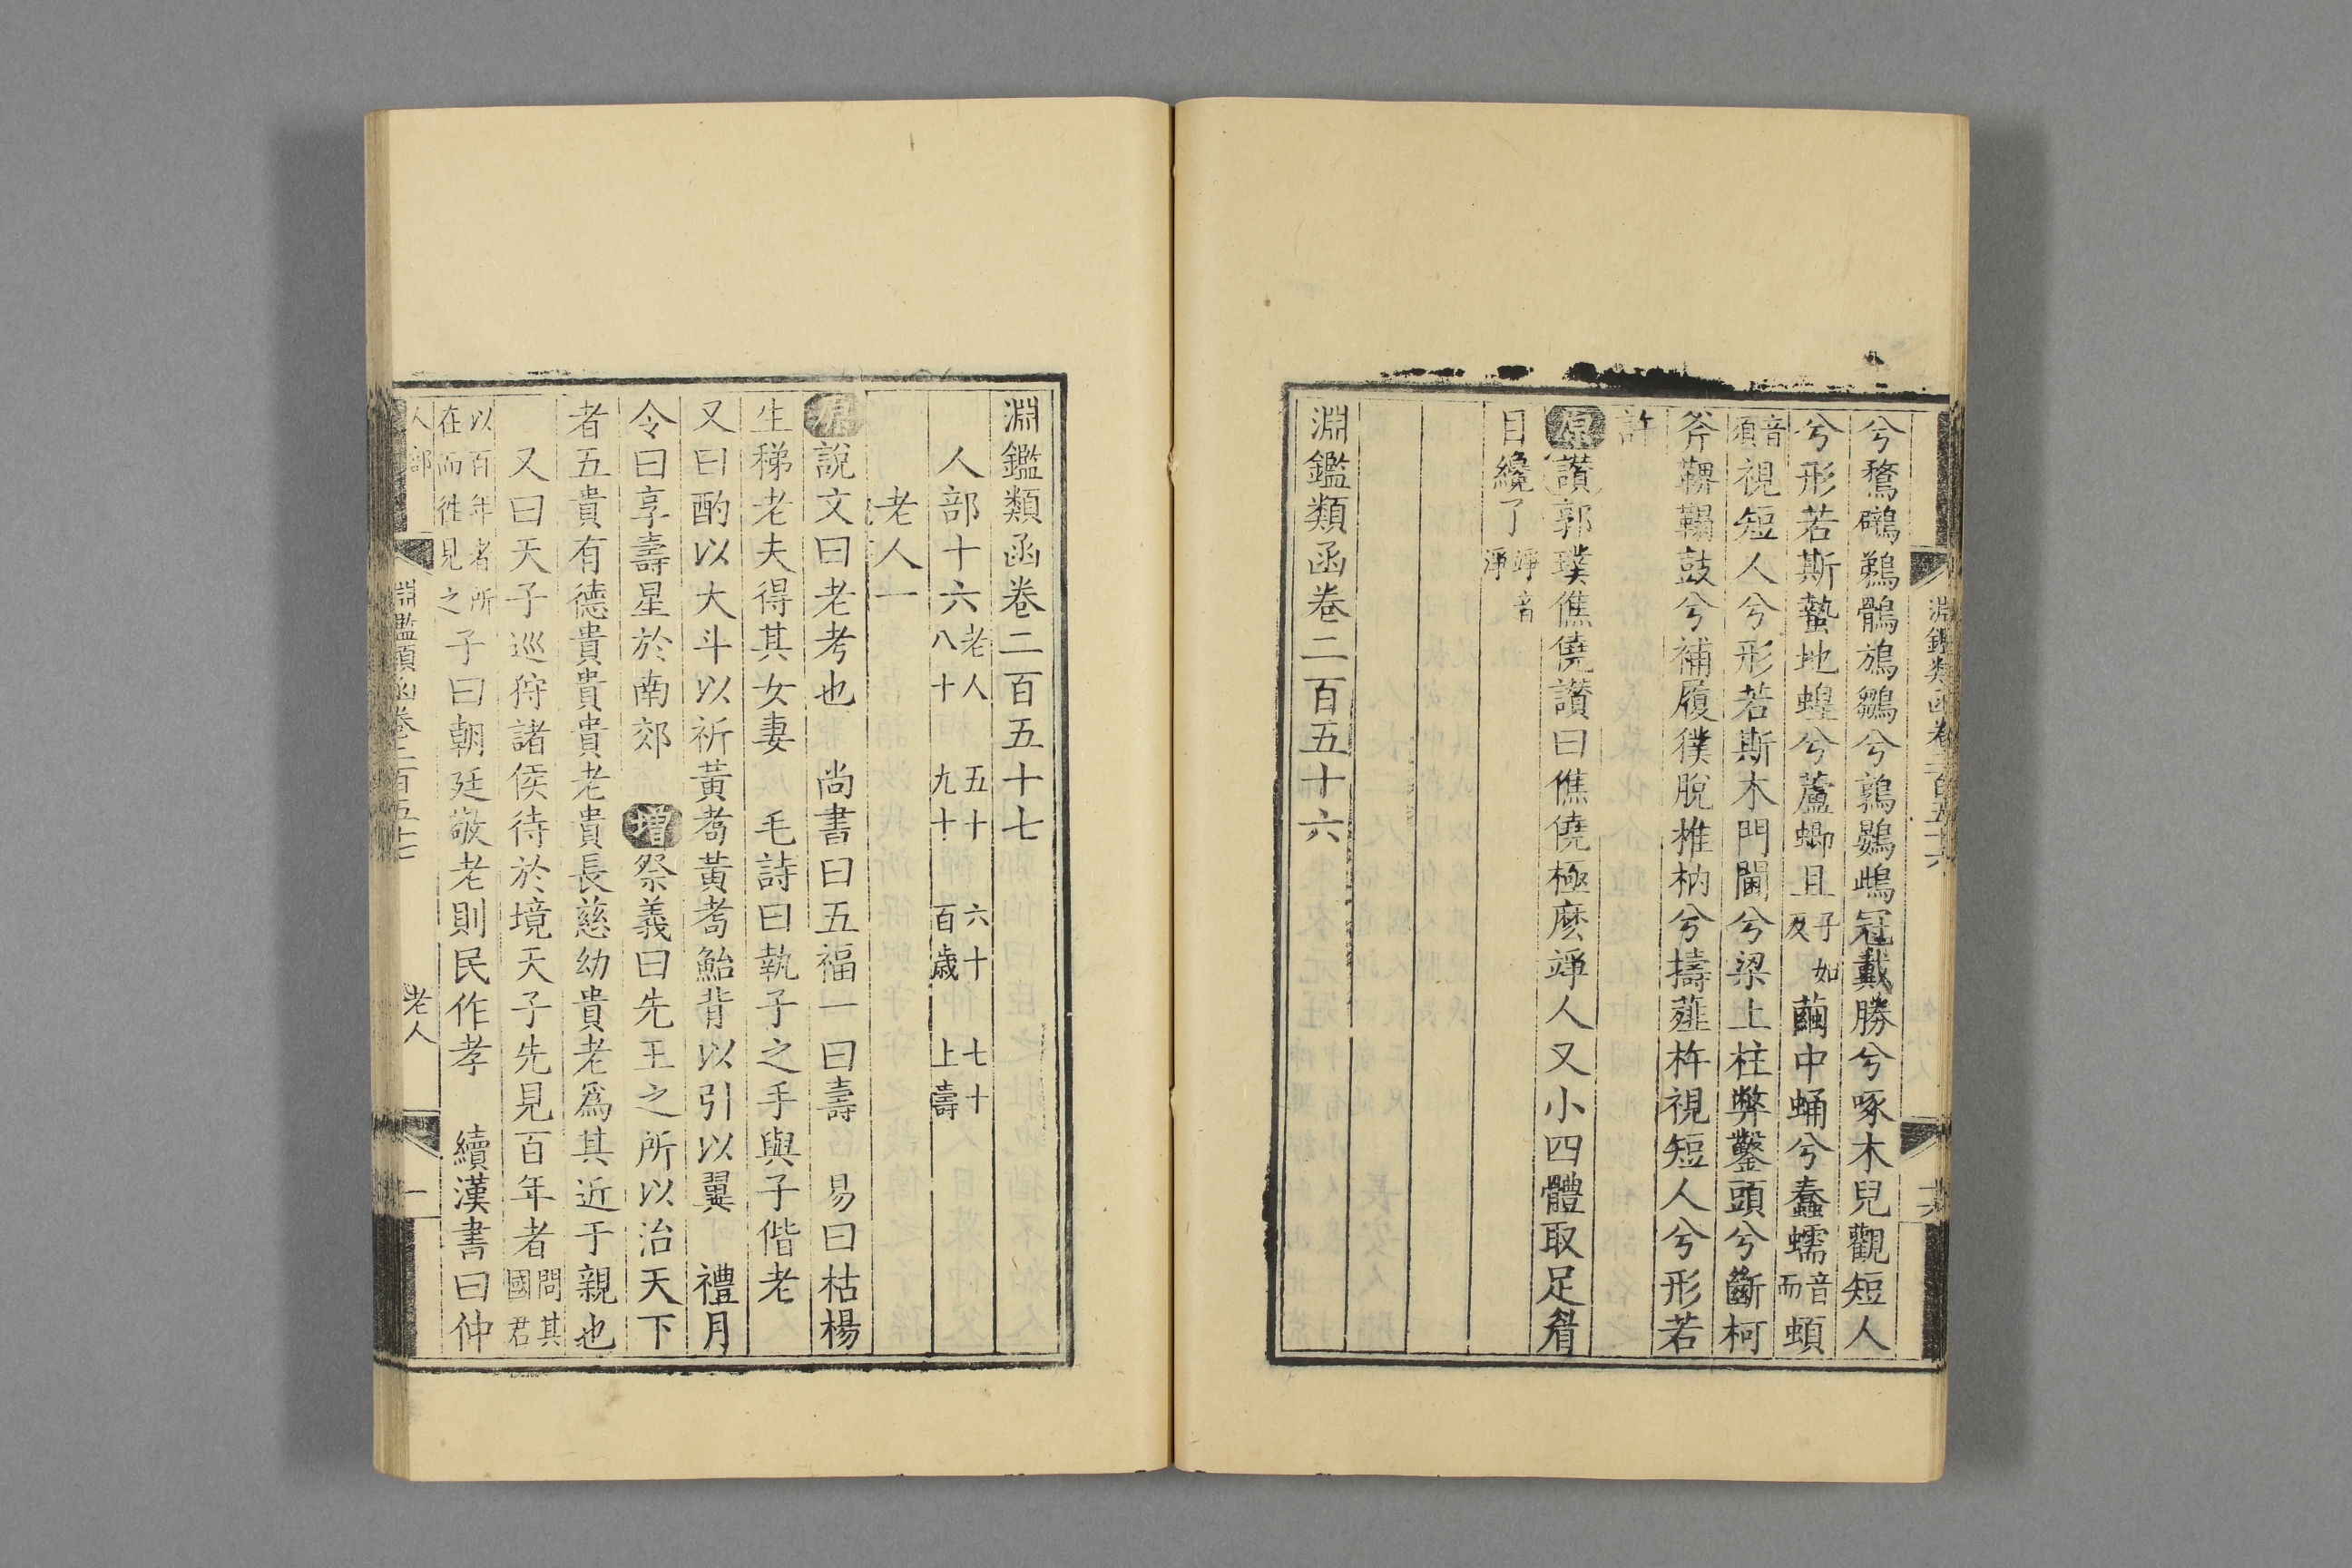 兮鶩鷿鵜鶻鴆鶵兮鶉鷃鴟冠戴勝兮啄木兒觀短人
兮形若斯蟄地蝗兮蘆蝍且子如反繭中蛹兮蠹蠕音而蝢
音須視短人兮形若斯木門閫兮梁上柱弊鑿頭兮斷柯
斧鞞鞨鼓兮補履樸脫椎枘兮擣薤杵視短人兮形若
許
原讃郭璞僬僥讃曰僬僥極麽竫人又小四體取足眉
目纔了竫音淨
淵鑑類函卷二百五十六
淵鑑類函卷二百五十六
淵鑑類函卷二百五十七
人部十六老人 五十 六十 七十 八十 九十 百歲 上壽
老人一
原說文曰老考也 尚書曰五福一曰壽 易曰枯楊
生稊老夫得其女妻 毛詩曰執子之手與子偕老
又曰酌以大斗以祈黃耇黃耇鮐背以引以翼 禮月
令曰享壽星於南郊 增祭義曰先王之所以治天下
者五貴有德貴貴貴老貴長慈幼貴老爲其近于親也
又曰天子巡狩諸侯待於境天子先見百年者問其國君
以百年者所在而往見之子曰朝廷敬老則民作孝 續漢書曰仲
人部 淵鑑類函卷二百五十七 老人 一